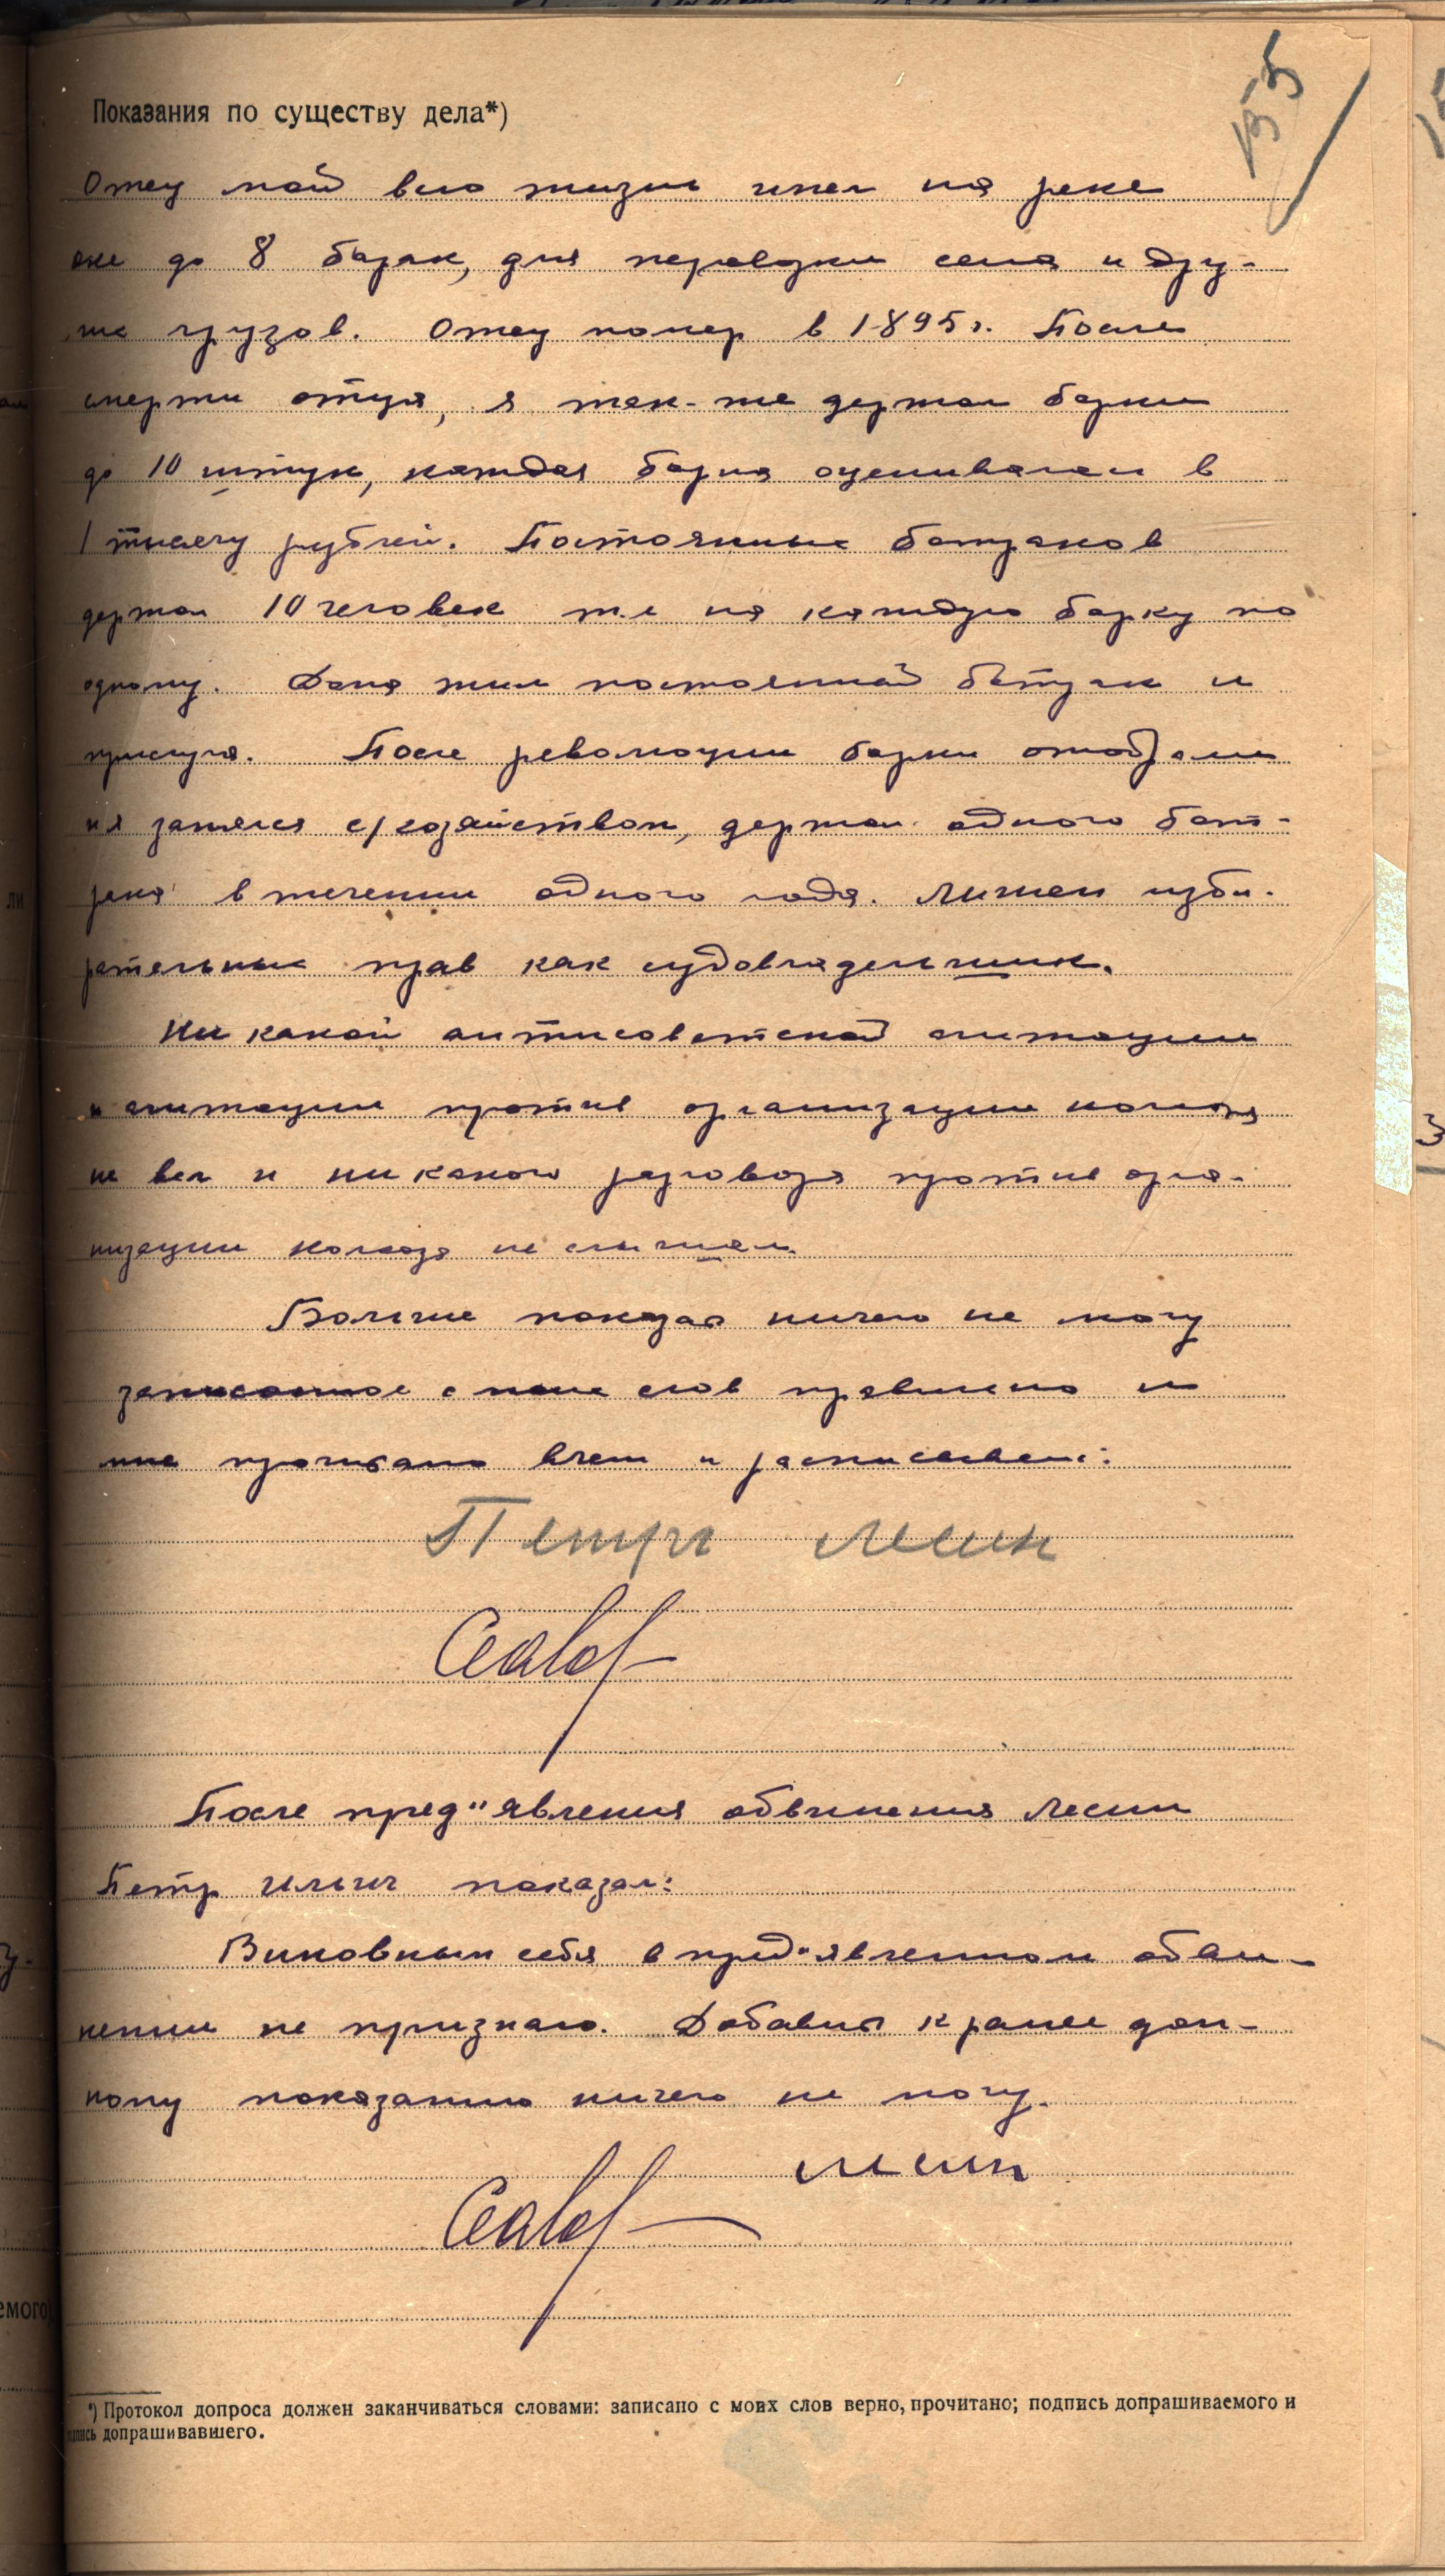 155
Показания по существу дела*)
Отец мой всю жизнь имел на реке
оке до 8 барок, для перевозки сена и дру-
гих грузов. Отец помер в 1895 г. После
смерти отца, я так-же держал барки
до 10 штук, каждая барка оценивалась в
1 тысячу рублей. Постоянных батраков
держал 10 человек т.е на каждую барку по
одному. Дома жил постоянной батрак и
прислуга. После революции барки отобрали
и я занялся с/хозяйством, держал одного бат-
рака в течении одного года. Лишен изби-
рательных прав как судовладельщик.
Ни какой антисоветской агитации
и агитации против организации колхоза
не вел и ни какого разговора против орга-
низации колхоза не слышал.
Больше показать ничего не могу
записанное с моих слов правильно и
мне прочитано в чем и расписываюсь:
Петр Лесин
После пред"явления обвинения Лесин
Петр Ильич показал:
Виновным себя в пред"явленном обви-
нении не признаю. Добавить к ранее дан-
ному показанию ничего не могу.
Лесин
*) Протокол допроса должен заканчиваться словами: записано с моих слов верно, прочитано; подпись допрашиваемого и
подпись допрашивавшего.